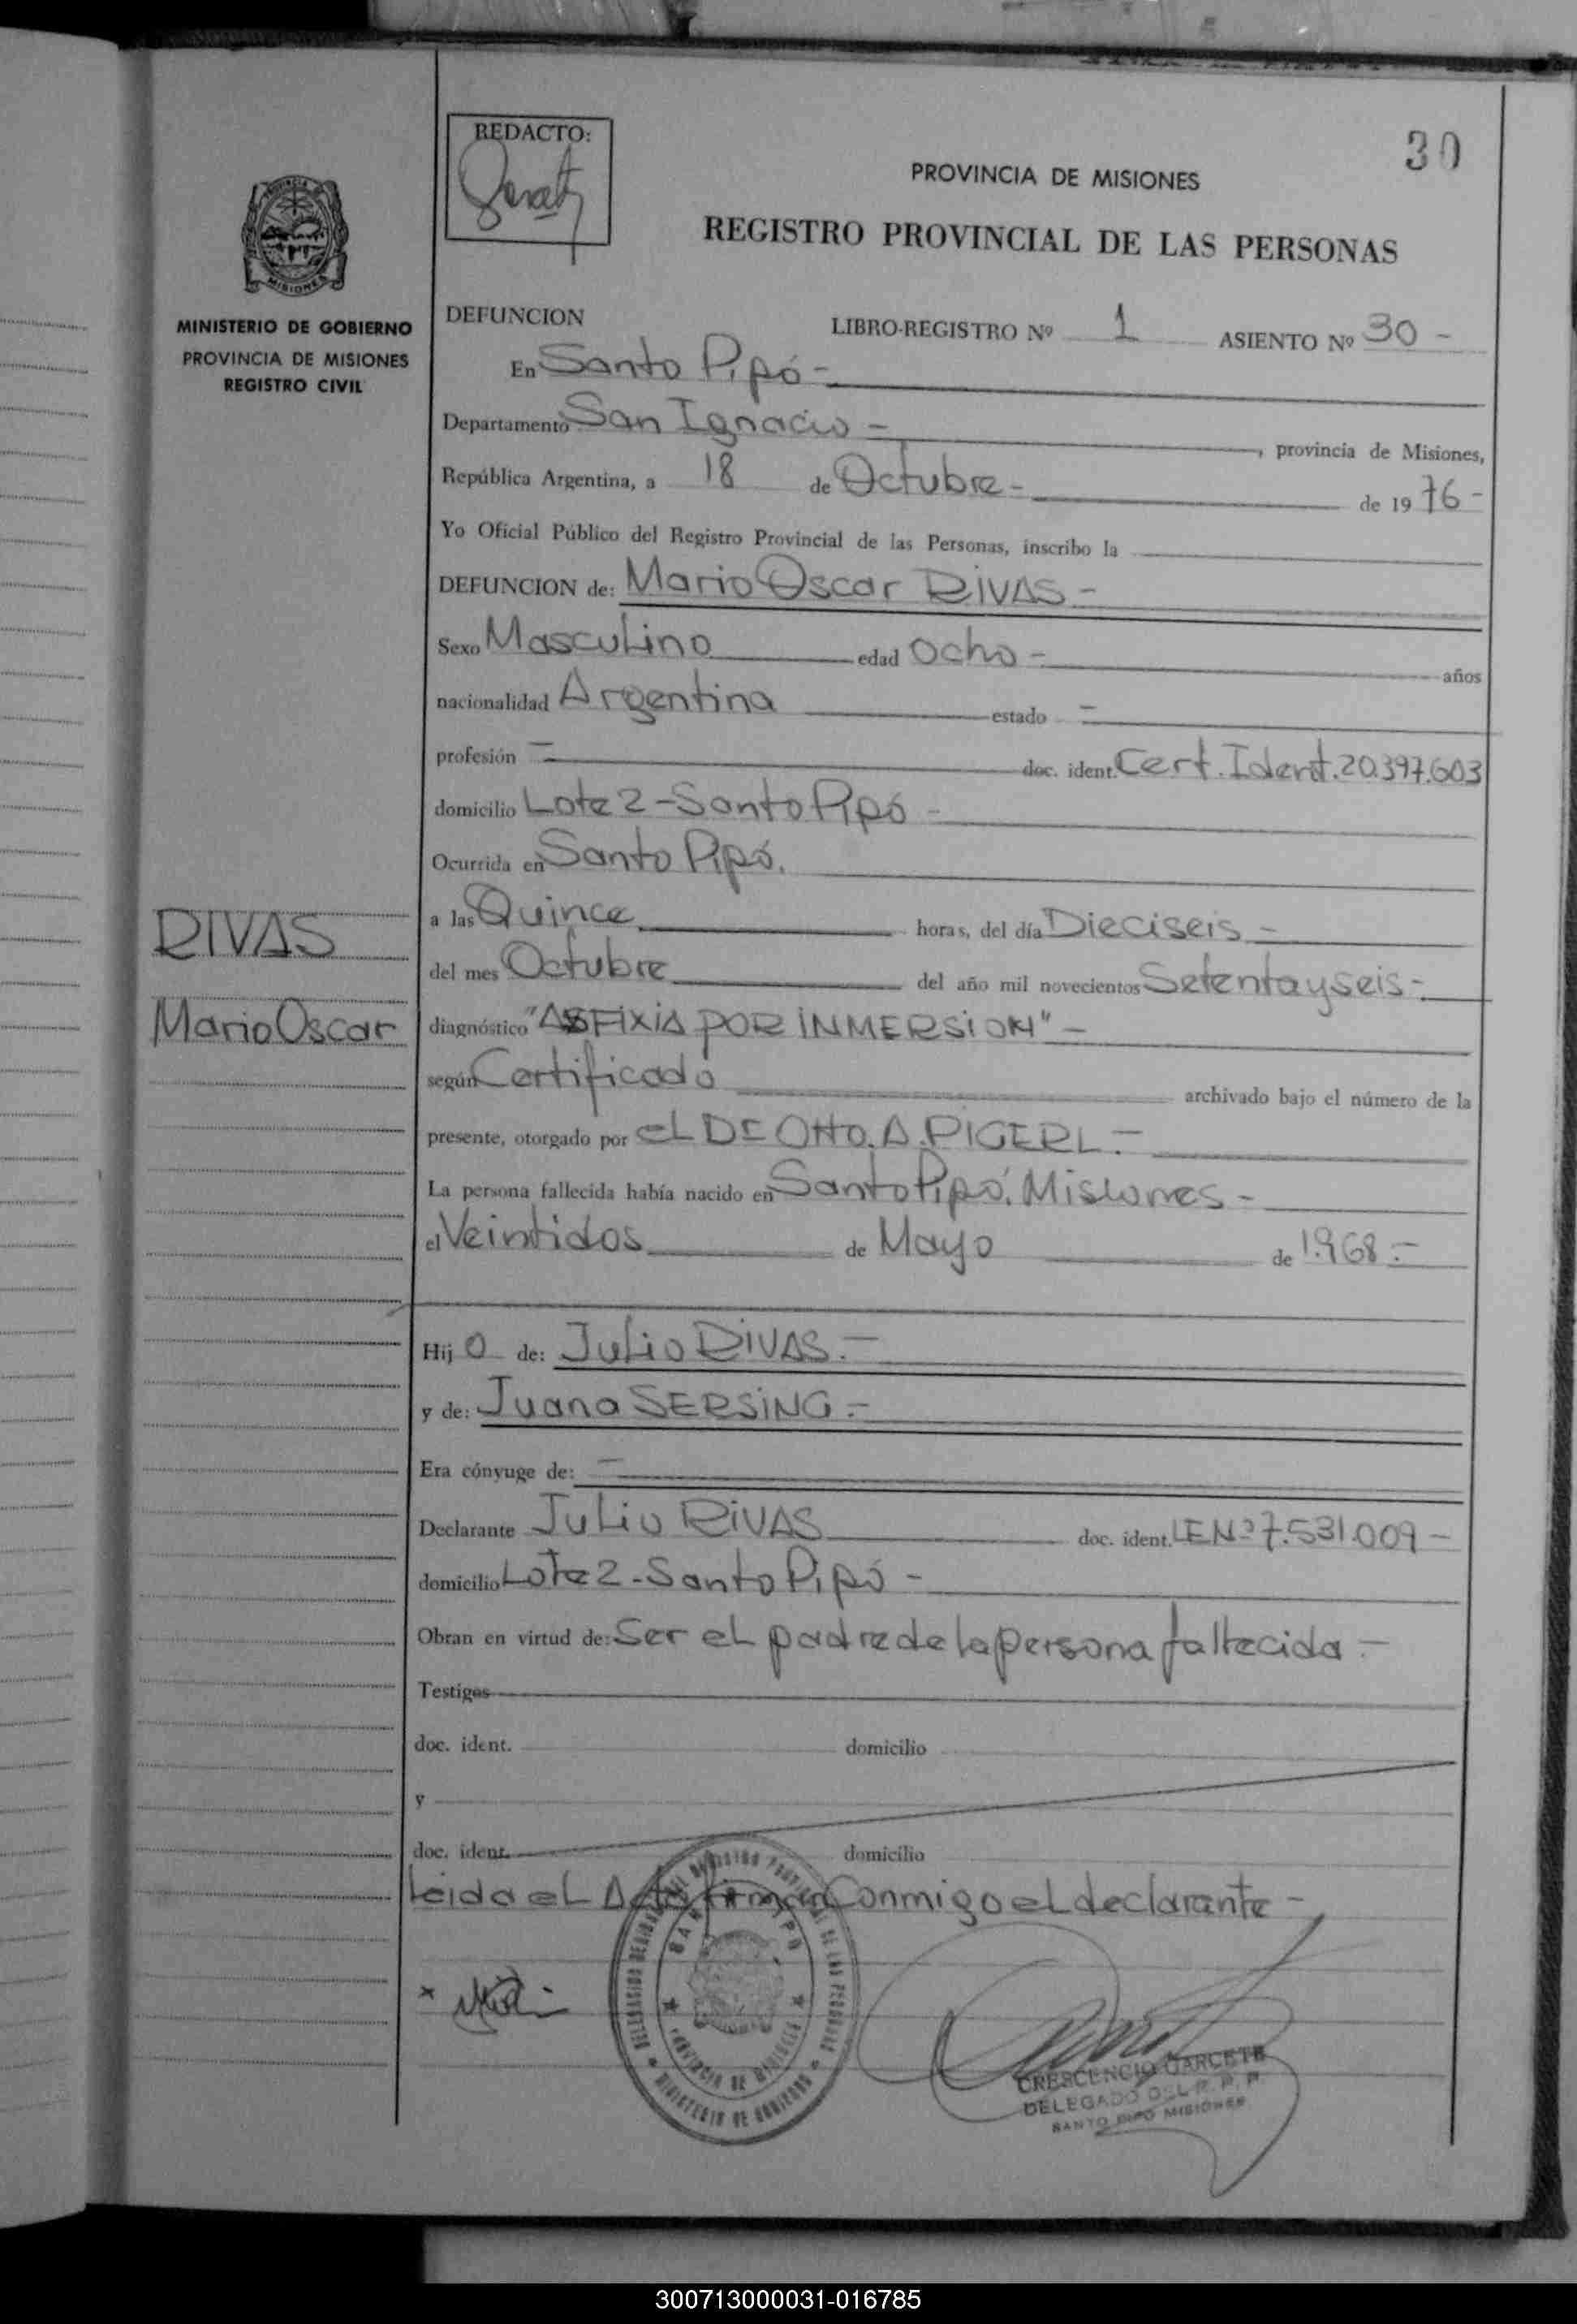 30
REDACTO:
PROVINCIA DE MISIONES
REGISTRO PROVINCIAL DE LAS PERSONAS
PROVINCIA
MISIONES
MINISTERIO DE GOBIERNO
PROVINCIA DE MISIONES
REGISTRO CIVIL
DEFUNCION LIBRO-REGISTRO Nº 1 ASIENTO Nº 30 -
En Santo Pipó -
Departamento San Ignacio - , provincia de Misiones,
República Argentina, a 18 de Octubre - de 1976 -
Yo Oficial Público del Registro Provincial de las Personas, inscribo la
DEFUNCION de: Mario Oscar RIVAS -
Sexo Masculino edad Ocho - años
nacionalidad Argentina estado -
profesión - doc. ident. Cert. Ident. 20.397.603
domicilio Lote 2 - Santo Pipó -
Ocurrida en Santo Pipó.
a las Quince horas, del día Dieciseis -
del mes Octubre del año mil novecientos Setenta y seis -
RIVAS
Mario Oscar
diagnóstico "ASFIXIA POR INMERSION" -
según Certificado archivado bajo el número de la
presente, otorgado por el Dr Otto. A. PIGERL. -
La persona fallecida había nacido en Santo Pipó. Misiones -
el Veintidos de Mayo de 1.968 .-
Hijo de: Julio RIVAS. -
y de: Juana SERSING. -
Era cónyuge de: -
Declarante Julio RIVAS doc. ident. LE Nº 7.531.009 -
domicilio Lote 2 - Santo Pipó -
Obran en virtud de: Ser el padre de la persona fallecida. -
Testigos
doc. ident. domicilio
y
doc. ident. domicilio
leida el Acta firman Conmigo el declarante -
PROVINCIA DE MISIONES
MINISTERIO DE GOBIERNO
CRESCENCIO GARCETE
DELEGADO DEL R. P. P.
SANTO PIPÓ MISIONES
300713000031-016785